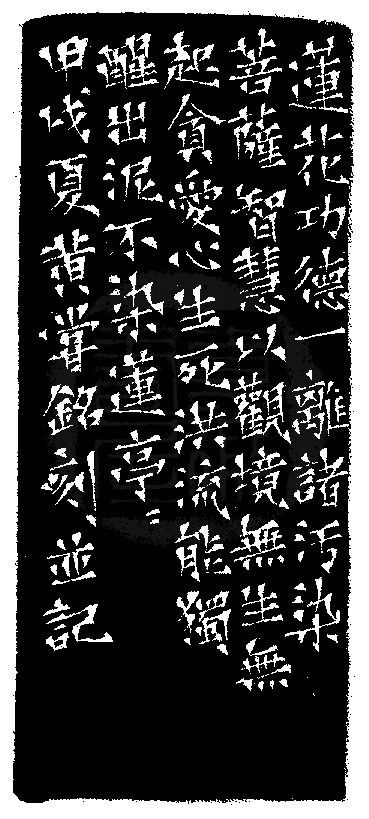 蓮花功德一離諸汚染
菩薩智慧以觀境無生無
起貪愛心生死洪流能獨
醒出泥不染蓮亭亭
甲戌夏黄嘗銘刻並記